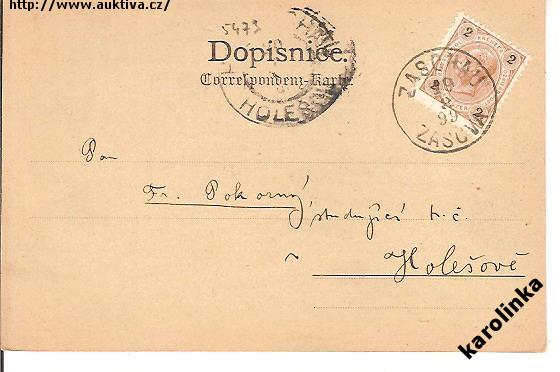 http://www.auktiva.cz/
5473
Dopisnice.
Correspondenz-Karte.
HOLEŠ
2 2
2
ZASCHAU
99
ZAŠOVA
Pan
Fr. Pokorný
studující t. č.
v Holešově
karolinka